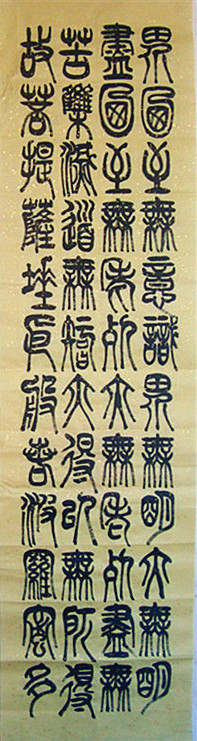 界迺至無意識界無明亦無明
盡迺至無老死亦無老死盡無
苦集滅道無智亦得以無所得
故菩提薩埵依般若波羅蜜多